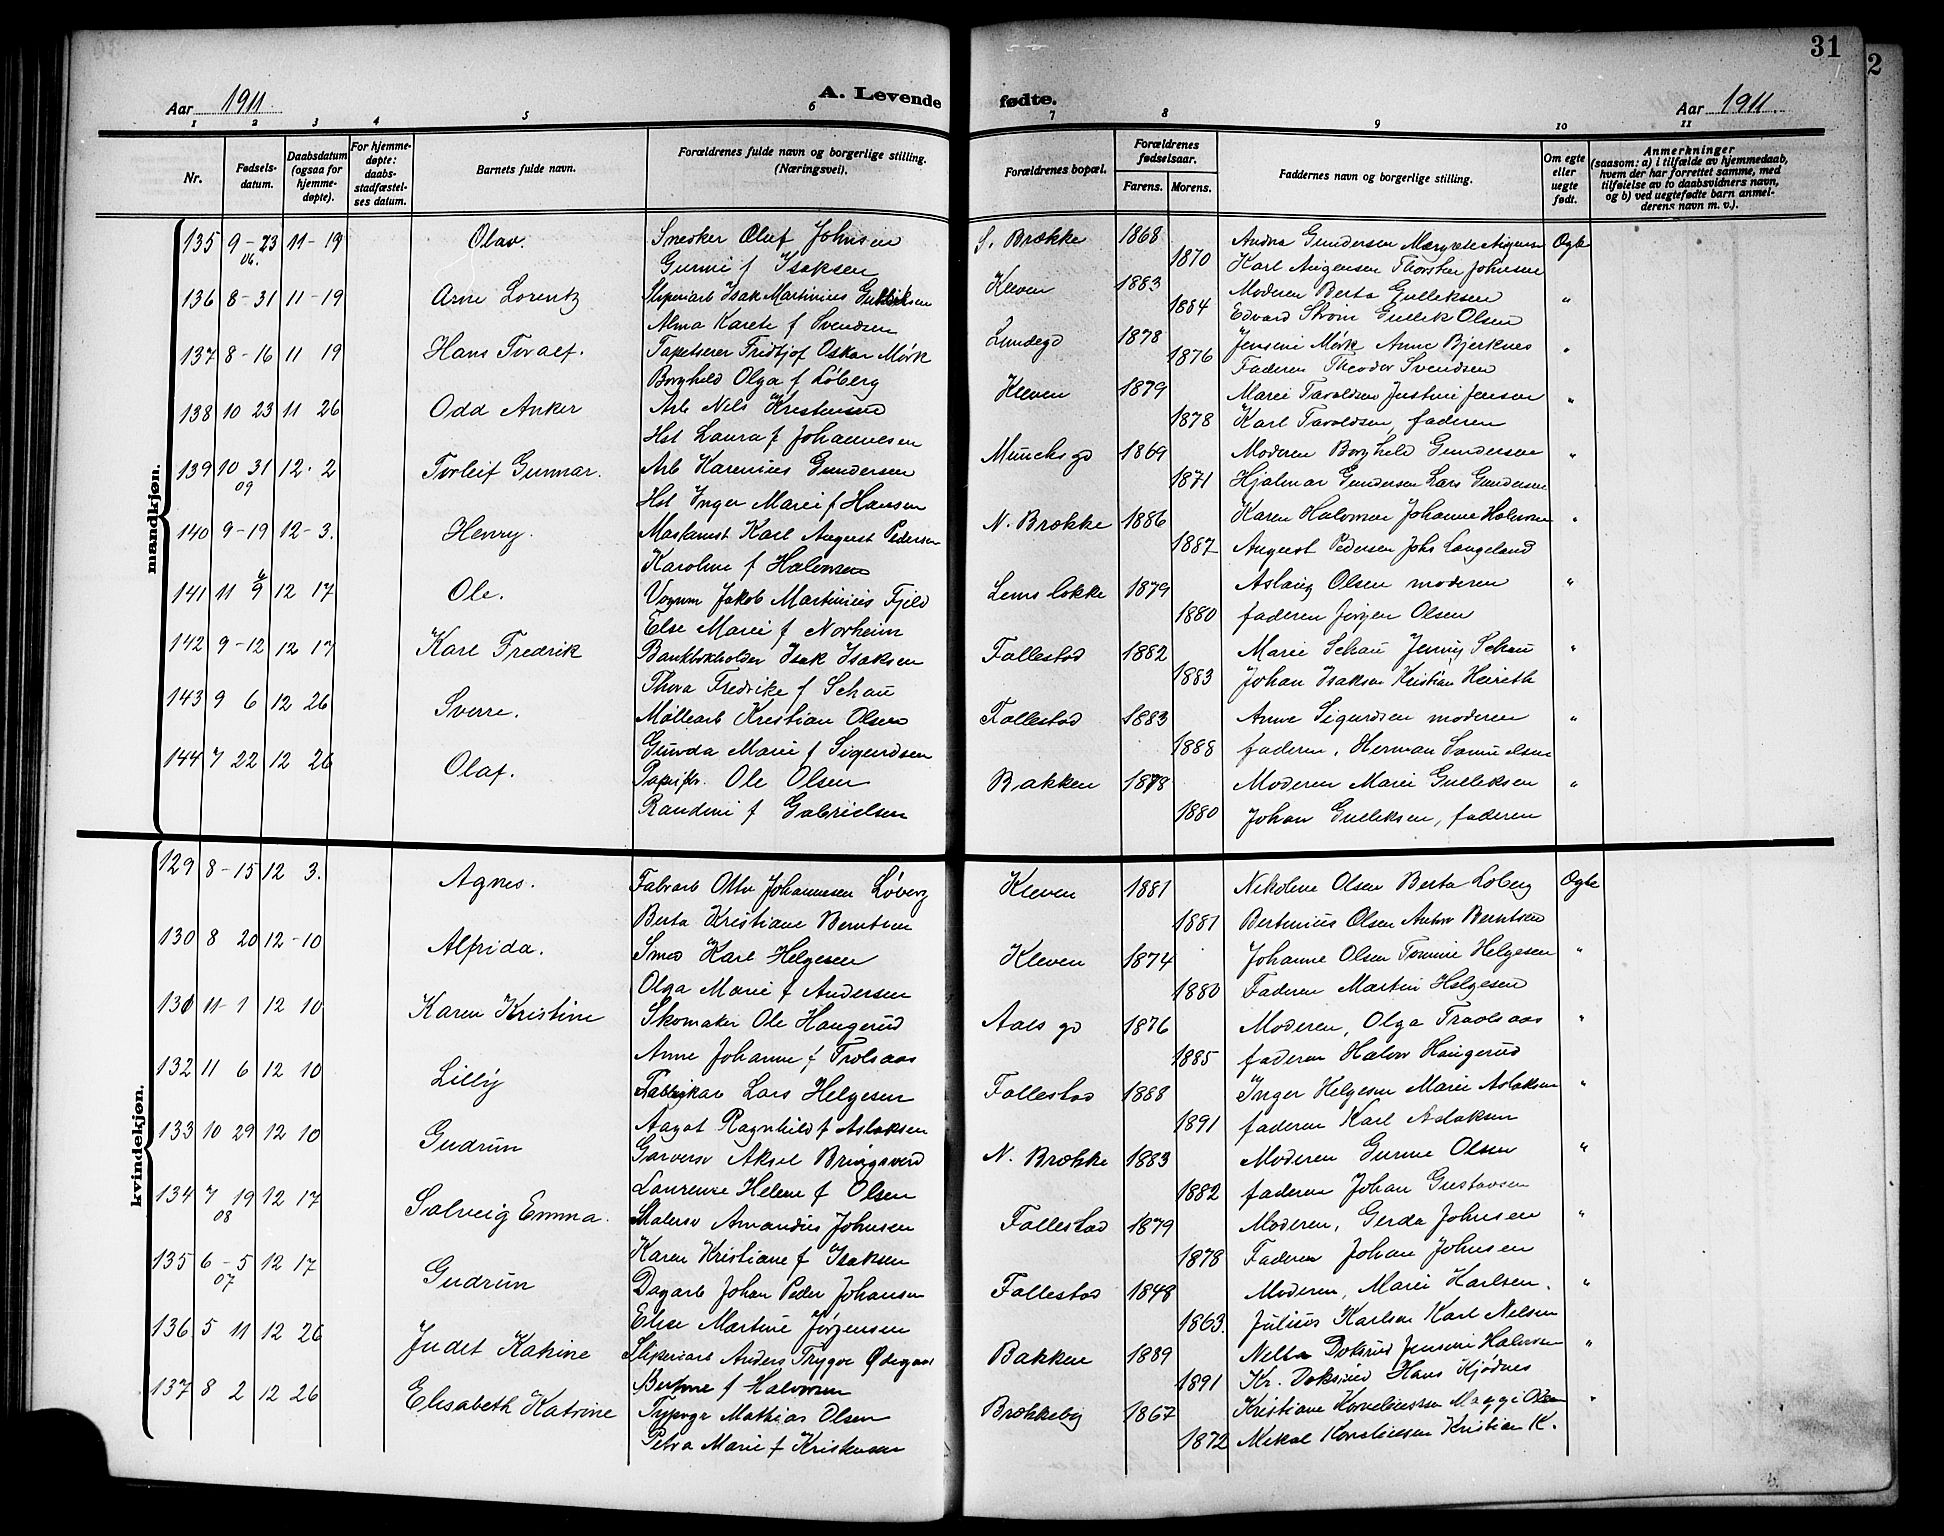 31
2
Aar 1911.
A. Levende
fødte.
Aar 1911.
1 2 3 4 5 6 7 8 9 10 11
Nr.
Fødsels-
datum.
Daabsdatum
(ogsaa for
hjemme-
døpte).
For hjemme-
døpte:
daabs-
stadfæstel-
ses datum.
Barnets fulde navn.
Forældrenes fulde navn og borgerlige stilling.
(Næringsvei).
Forældrenes bopæl.
Forældrenes
fødselsaar.
Farens. Morens.
Faddernes navn og borgerlige stilling.
Om egte
eller
uegte
født.
Anmerkninger
(saasom: a) i tilfælde av hjemmedaab,
hvem der har forrettet samme, med
tilføielse av to daabsvidners navn,
og b) ved uegtefødte barn anmel-
derens navn m. v.).
mandkjøn.
135 9-23 11-19 Olav. Snedker Oluf Johnsen S. Brække 1868 Gundersen Margrete Ægte
06. Gurine f Isaksen 1870 Karl Thorsten Johnsen
136 8-31 11-19 Arne Lorentz Sliperiarb Isak Martinius Gulliksen Kleven 1883 Moderen Berta Gulleksen "
Alma Karete f Svendsen 1884 Edvard Strøm Gullik Olsen
137 8-16 11 19 Hans Toralf. Tapetserer Fridtjof Oskar Mørk Lundegd 1878 Jensine Mørk Anne Bjerknes "
Borghild Olga f Løberg 1876 Faderen Theodor Svendsen
138 10 23 11 26 Odd Anker Arb Nels Kristensen Kleven 1879 Marie Taraldsen Justine Jensen "
Hst Laura f Johannesen 1878 Karl Taraldsen, faderen
139 10 31 12. 2 Torleif Gunnar. Arb Karenius Gundersen Muncks gd 1869 Moderen Borghild Gundersen "
09 Hst Inger Marie f Hansen 1871 Hjalmar Gundersen Lars Gundersen
140 9-19 12-3. Henry. Karl August Pedersen N. Brække 1886 Karen Halvorsen Johanne Halvorsen "
Karoline f Halvorsen 1887 August Pedersen Johs Langeland
141 11 9 12 17 Ole. Vognm Jakob Martinius Fjeld Lems løkke 1879 Aslaug Olsen moderen "
Else Marie f Norheim 1880 faderen Jørgen Olsen
142 9-12 12 17 Karl Fredrik Bankbokholder Isak Isaksen Follestad 1882 Marie Schau Jenny Schau "
Thora Fredrike f Schau 1883 Johan Isaksen Kristian Heireth
143 9 6 12 26 Sverre. Møllearb Kristian Olsen Follestad 1883 Anne Sigurdsen moderen "
Gunda Marie f Sigurdsen 1888 faderen, Herman Samuelsen
144 7 22 12 26 Olaf. Ole Olsen Bakken 1878 Moderen Marie Gulleksen "
Randine f Gabrielsen 1880 Johan Gulleksen, faderen
kvindekjøn.
129 8-15 12 3. Agnes. Fabrarb Otto Johannesen Løberg Kleven 1881 Nikoline Olsen Berta Løberg Ægte
Berta Kristiane Berntsen 1881 Bertinius Olsen Anton Berntsen
130 8 20 12-10 Alfrida. Smed Karl Helgesen Kleven 1874 Johanne Olsen Tomine Helgesen "
Olga Marie f Andersen 1880 Faderen Martin Helgesen
131 11-1 12 10 Karen Kristine Skomaker Ole Haugerud Aals gd 1876 Moderen, Olga Traalsaas "
Anne Johanne f Trolsaas 1885 faderen Halvor Haugerud
132 11 6 12 10 Lilly Lars Helgesen Follestad 1888 Inger Helgesen Marie Aslaksen "
Aagot Ragnhild f Aslaksen 1891 faderen Karl Aslaksen
133 10 29 12 10 Gudrun Garversv Aksel Bringsverd N. Brække 1883 Moderen Gurine Olsen "
Laurense Helene f Olsen 1882 faderen Johan Gustavsen
134 7 19 12 17 Solveig Emma. Malersv Amandus Johnsen Follestad 1879 Moderen, Gerda Johnsen "
08 Karen Kristiane f Isaksen 1878 Faderen Johan Johnsen
135 6-5 12 17 Gudrun Dagarb Johan Peder Johansen Follestad 1848 Moderen, Marie Karlsen. "
07 Elise Martine Jørgensen 1863. Julius Karlsen Karl Nelsen
136 5 11 12 26 Judet Katrine Sliperiarb Anders Trygve Ødegaard Bakken 1889 Nella Doksrud Jensine Halvorsen "
Bertine f Halvorsen 1891 Kr. Doksrud Hans Kjødnes
137 8 2 12 26 Elisabeth Katrine Mathias Olsen Brækkeby 1867 Kristiane Korneliussen Maggi Olsen "
Petra Marie f Kristensen 1872 Mikal Korneliussen Kristian K.